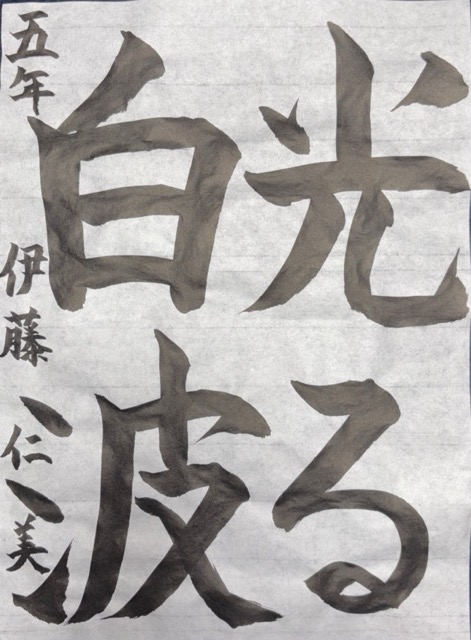 光る
白波
五年 伊藤 仁美